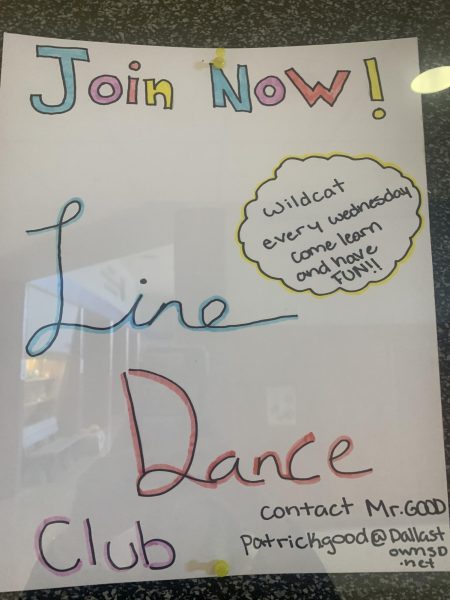 Join Now!
Wildcat
every wednesday
come learn
and have
FUN!!
Line
Dance
Club
contact Mr.GOOD
patrickgood@Dallast
ownSD
.net